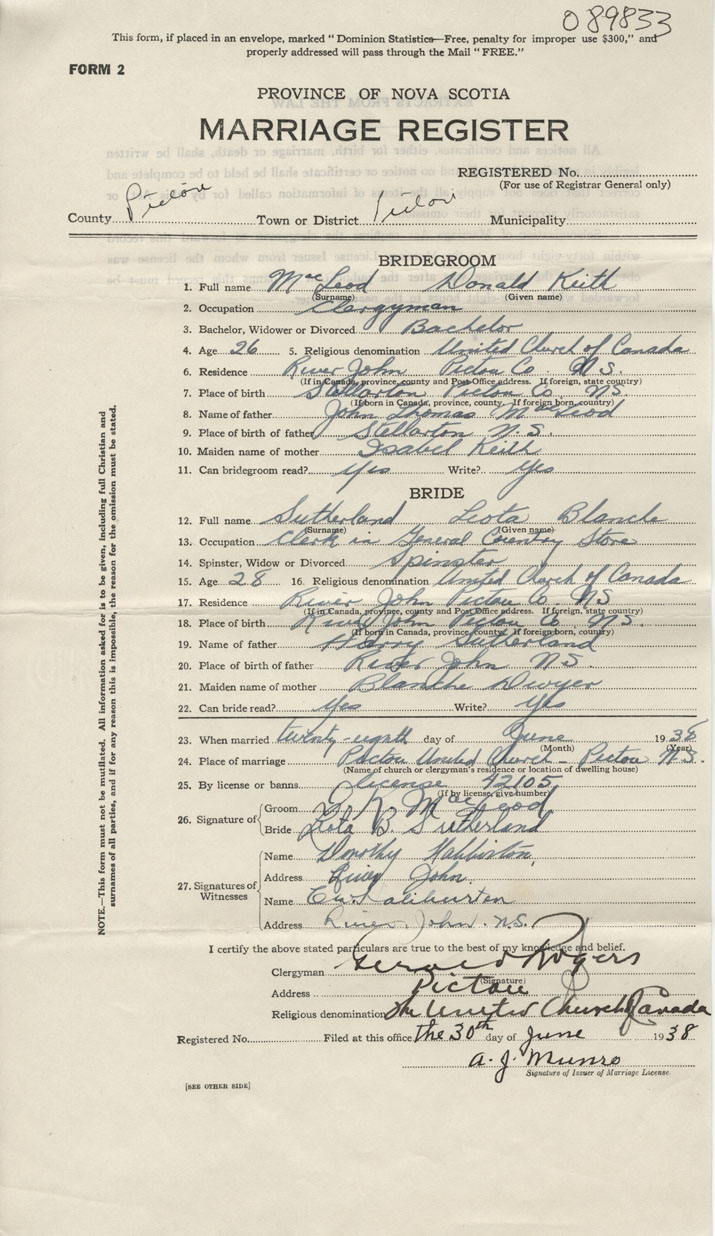 089833
This form, if placed in an envelope, marked "Dominion Statistics—Free, penalty for improper use $300," and
properly addressed will pass through the Mail "FREE."
FORM 2
PROVINCE OF NOVA SCOTIA
MARRIAGE REGISTER
REGISTERED No.
(For use of Registrar General only)
County Pictou Town or District Pictou Municipality
BRIDEGROOM
1. Full name MacLeod Donald Keith
(Surname) (Given name)
2. Occupation Clergyman
3. Bachelor, Widower or Divorced Bachelor
4. Age 26 5. Religious denomination United Church of Canada
6. Residence River John Pictou Co. N.S.
(If in Canada, province, county and Post Office address. If foreign, state country)
7. Place of birth Stellarton Pictou Co. N.S.
(If born in Canada, province, county. If foreign born, country)
8. Name of father John Thomas MacLeod
9. Place of birth of father Stellarton N.S.
10. Maiden name of mother Isabel Keith
11. Can bridegroom read? Yes Write? Yes
BRIDE
12. Full name Sutherland Leota Blanche
(Surname) (Given name)
13. Occupation Clerk in General Country Store
14. Spinster, Widow or Divorced Spinster
15. Age 28 16. Religious denomination United Church of Canada
17. Residence River John Pictou Co NS
(If in Canada, province, county and Post Office address. If foreign, state country)
18. Place of birth River John Pictou Co. N.S.
(If born in Canada, province, county. If foreign born, country)
19. Name of father Harry Sutherland
20. Place of birth of father River John N.S.
21. Maiden name of mother Blanche Dwyer
22. Can bride read? Yes Write? Yes
23. When married twenty-eighth day of June 1938
(Month) (Year)
24. Place of marriage Pictou United Church - Pictou N.S.
(Name of church or clergyman's residence or location of dwelling house)
25. By license or banns license 42105
(If by license, give number)
26. Signature of Groom D. K. MacLeod
Bride Leota B. Sutherland
27. Signatures of Witnesses
Name Dorothy
Address River John
Name Haliburton
Address River John. N.S.
I certify the above stated particulars are true to the best of my knowledge and belief.
Clergyman Gerald Rogers
(Signature)
Address Pictou
Religious denomination The United Church of Canada
Registered No. Filed at this office the 30th day of June 1938
A. J. Munro
Signature of Issuer of Marriage License
[SEE OTHER SIDE]
NOTE.—This form must not be mutilated. All information asked for is to be given, including full Christian and
surnames of all parties, and if for any reason this is impossible, the reason for the omission must be stated.